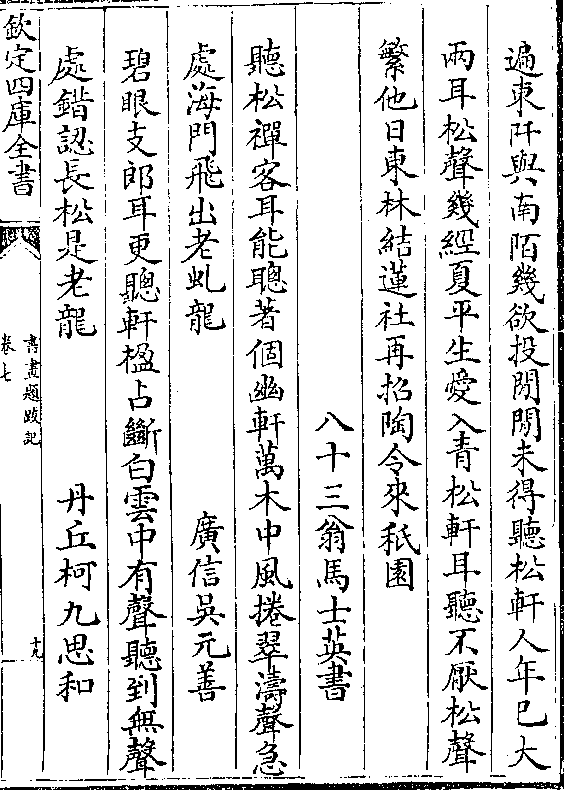 遍東阡與南陌幾欲投閒閒未得聽松軒人年已大
兩耳松聲幾經夏平生愛入青松軒耳聽不厭松聲
繁他日東林結蓮社再招陶令來秖園
八十三翁馬士英書
聽松禪客耳能聰著個幽軒萬木中風捲翠濤聲急
處海門飛出老虬龍
廣信吳元善
碧眼支郎耳更聽軒楹占斷白雲中有聲聽到無聲
處錯認長松是老龍
丹丘柯九思和
欽定四庫全書
書畫題跋記
卷七
十九